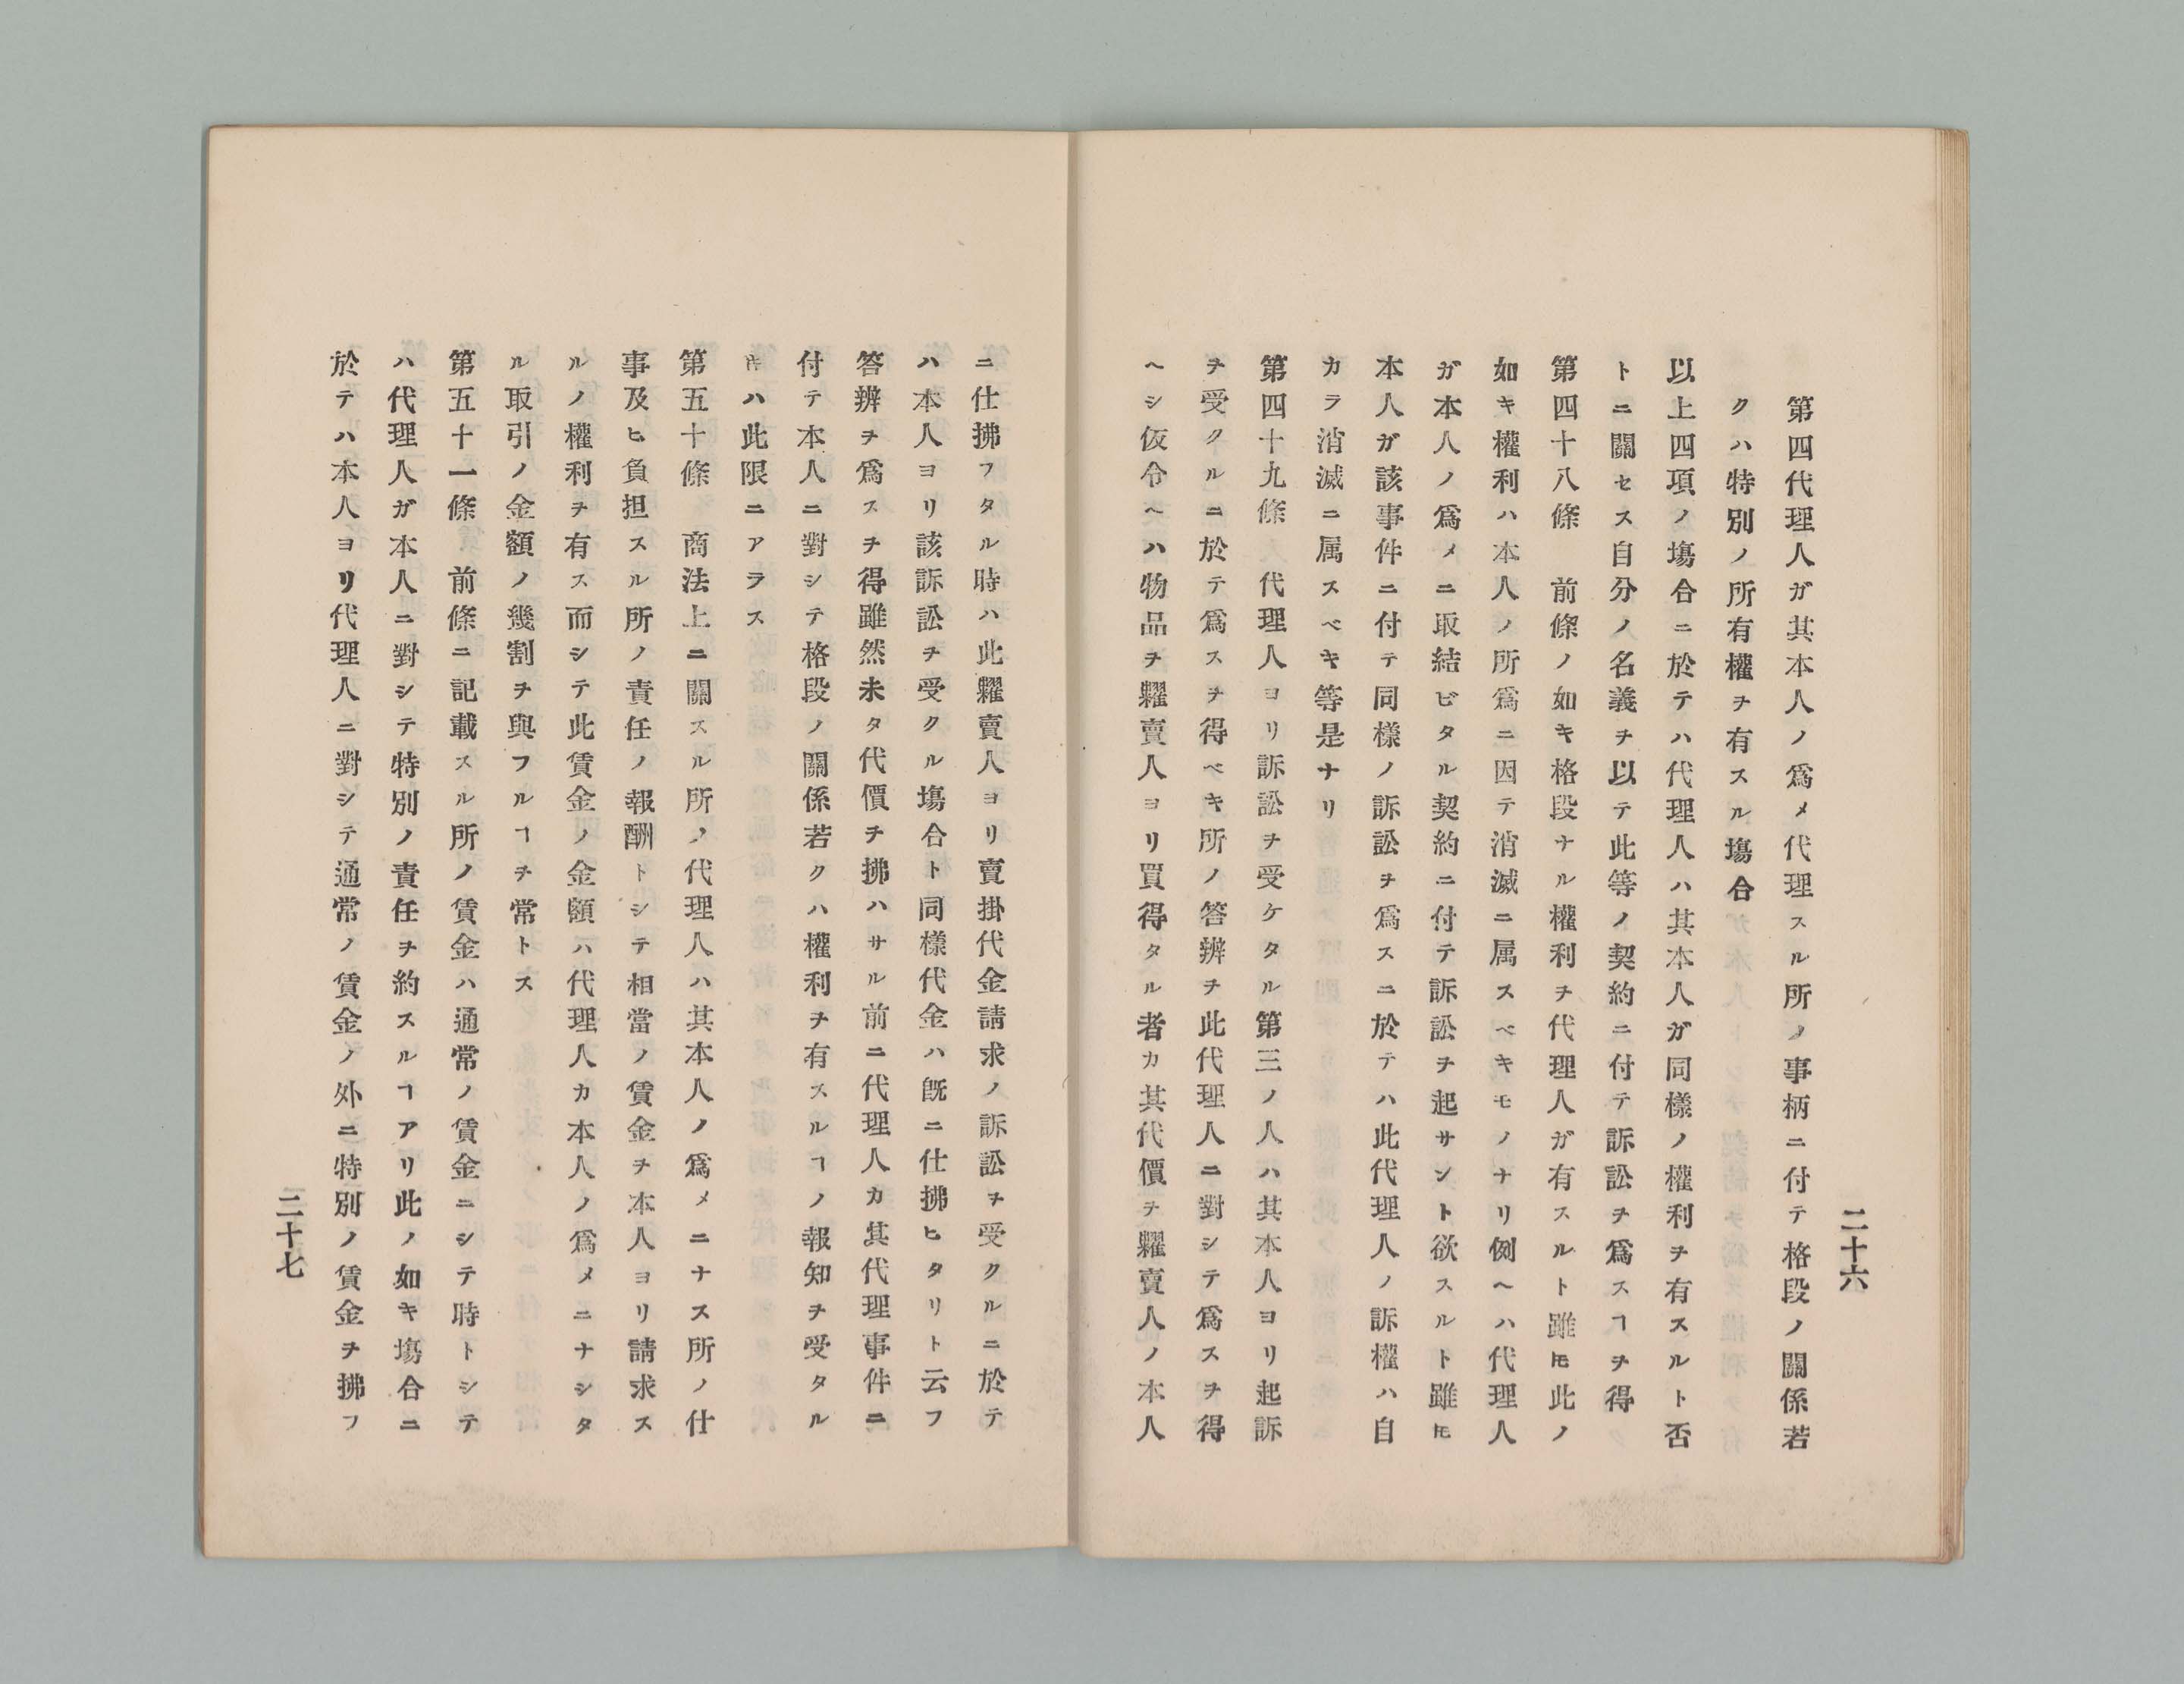 二十六
第四代理人ガ其本人ノ爲メ代理スル所ノ事柄ニ付テ格段ノ關係若
クハ特別ノ所有權ヲ有スル塲合
以上四項ノ塲合ニ於テハ代理人ハ其本人ガ同樣ノ權利ヲ有スルト否
トニ關セス自分ノ名義ヲ以テ此等ノ契約ニ付テ訴訟ヲ爲スヿヲ得
第四十八條　前條ノ如キ格段ナル權利ヲ代理人ガ有スルト雖𪜈此ノ
如キ權利ハ本人ノ所爲ニ因テ消滅ニ属スベキモノナリ例ヘハ代理人
ガ本人ノ爲メニ取結ビタル契約ニ付テ訴訟ヲ起サント欲スルト雖𪜈
本人ガ該事件ニ付テ同樣ノ訴訟ヲ爲スニ於テハ此代理人ノ訴權ハ自
カラ消滅ニ属スベキ等是ナリ
第四十九條　代理人ヨリ訴訟ヲ受ケタル第三ノ人ハ其本人ヨリ起訴
ヲ受クルニ於テ爲スヲ得ベキ所ノ答辨ヲ此代理人ニ對シテ爲スヲ得
ヘシ仮令ヘハ物品ヲ糶賣人ヨリ買得タル者カ其代價ヲ糶賣人ノ本人
ニ仕拂フタル時ハ此糶賣人ヨリ賣掛代金請求ノ訴訟ヲ受クルニ於テ
ハ本人ヨリ該訴訟ヲ受クル塲合ト同樣代金ハ既ニ仕拂ヒタリト云フ
答辨ヲ爲スヲ得雖然未タ代價ヲ拂ハサル前ニ代理人カ其代理事件ニ
付テ本人ニ對シテ格段ノ關係若クハ權利ヲ有スルヿノ報知ヲ受タル
𪜀ハ此限ニアラス
第五十條　商法上ニ關スル所ノ代理人ハ其本人ノ爲メニナス所ノ仕
事及ヒ負担スル所ノ責任ノ報酬トシテ相當ノ賃金ヲ本人ヨリ請求ス
ルノ權利ヲ有ス而シテ此賃金ノ金額ハ代理人カ本人ノ爲メニナシタ
ル取引ノ金額ノ幾割ヲ與フルヿヲ常トス
第五十一條　前條ニ記載スル所ノ賃金ハ通常ノ賃金ニシテ時トシテ
ハ代理人ガ本人ニ對シテ特別ノ責任ヲ約スルヿアリ此ノ如キ塲合ニ
於テハ本人ヨリ代理人ニ對シテ通常ノ賃金ノ外ニ特別ノ賃金ヲ拂フ
二十七